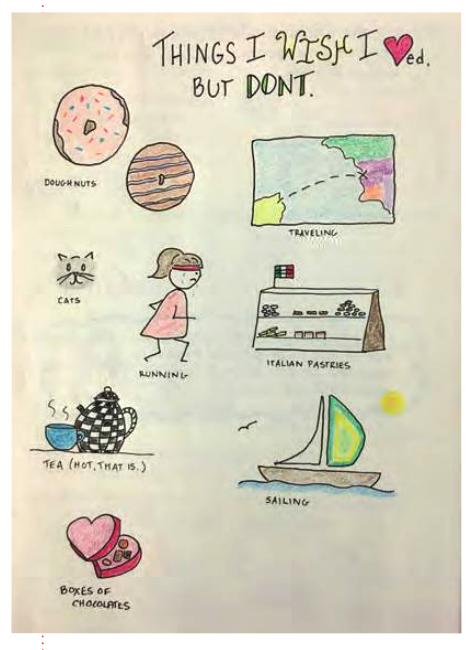 THINGS I WISH I ♥ed.
BUT DONT.
DOUGHNUTS
TRAVELING
CATS
RUNNING
ITALIAN PASTRIES
TEA (HOT, THAT IS.)
SAILING
BOXES OF
CHOCOLATES